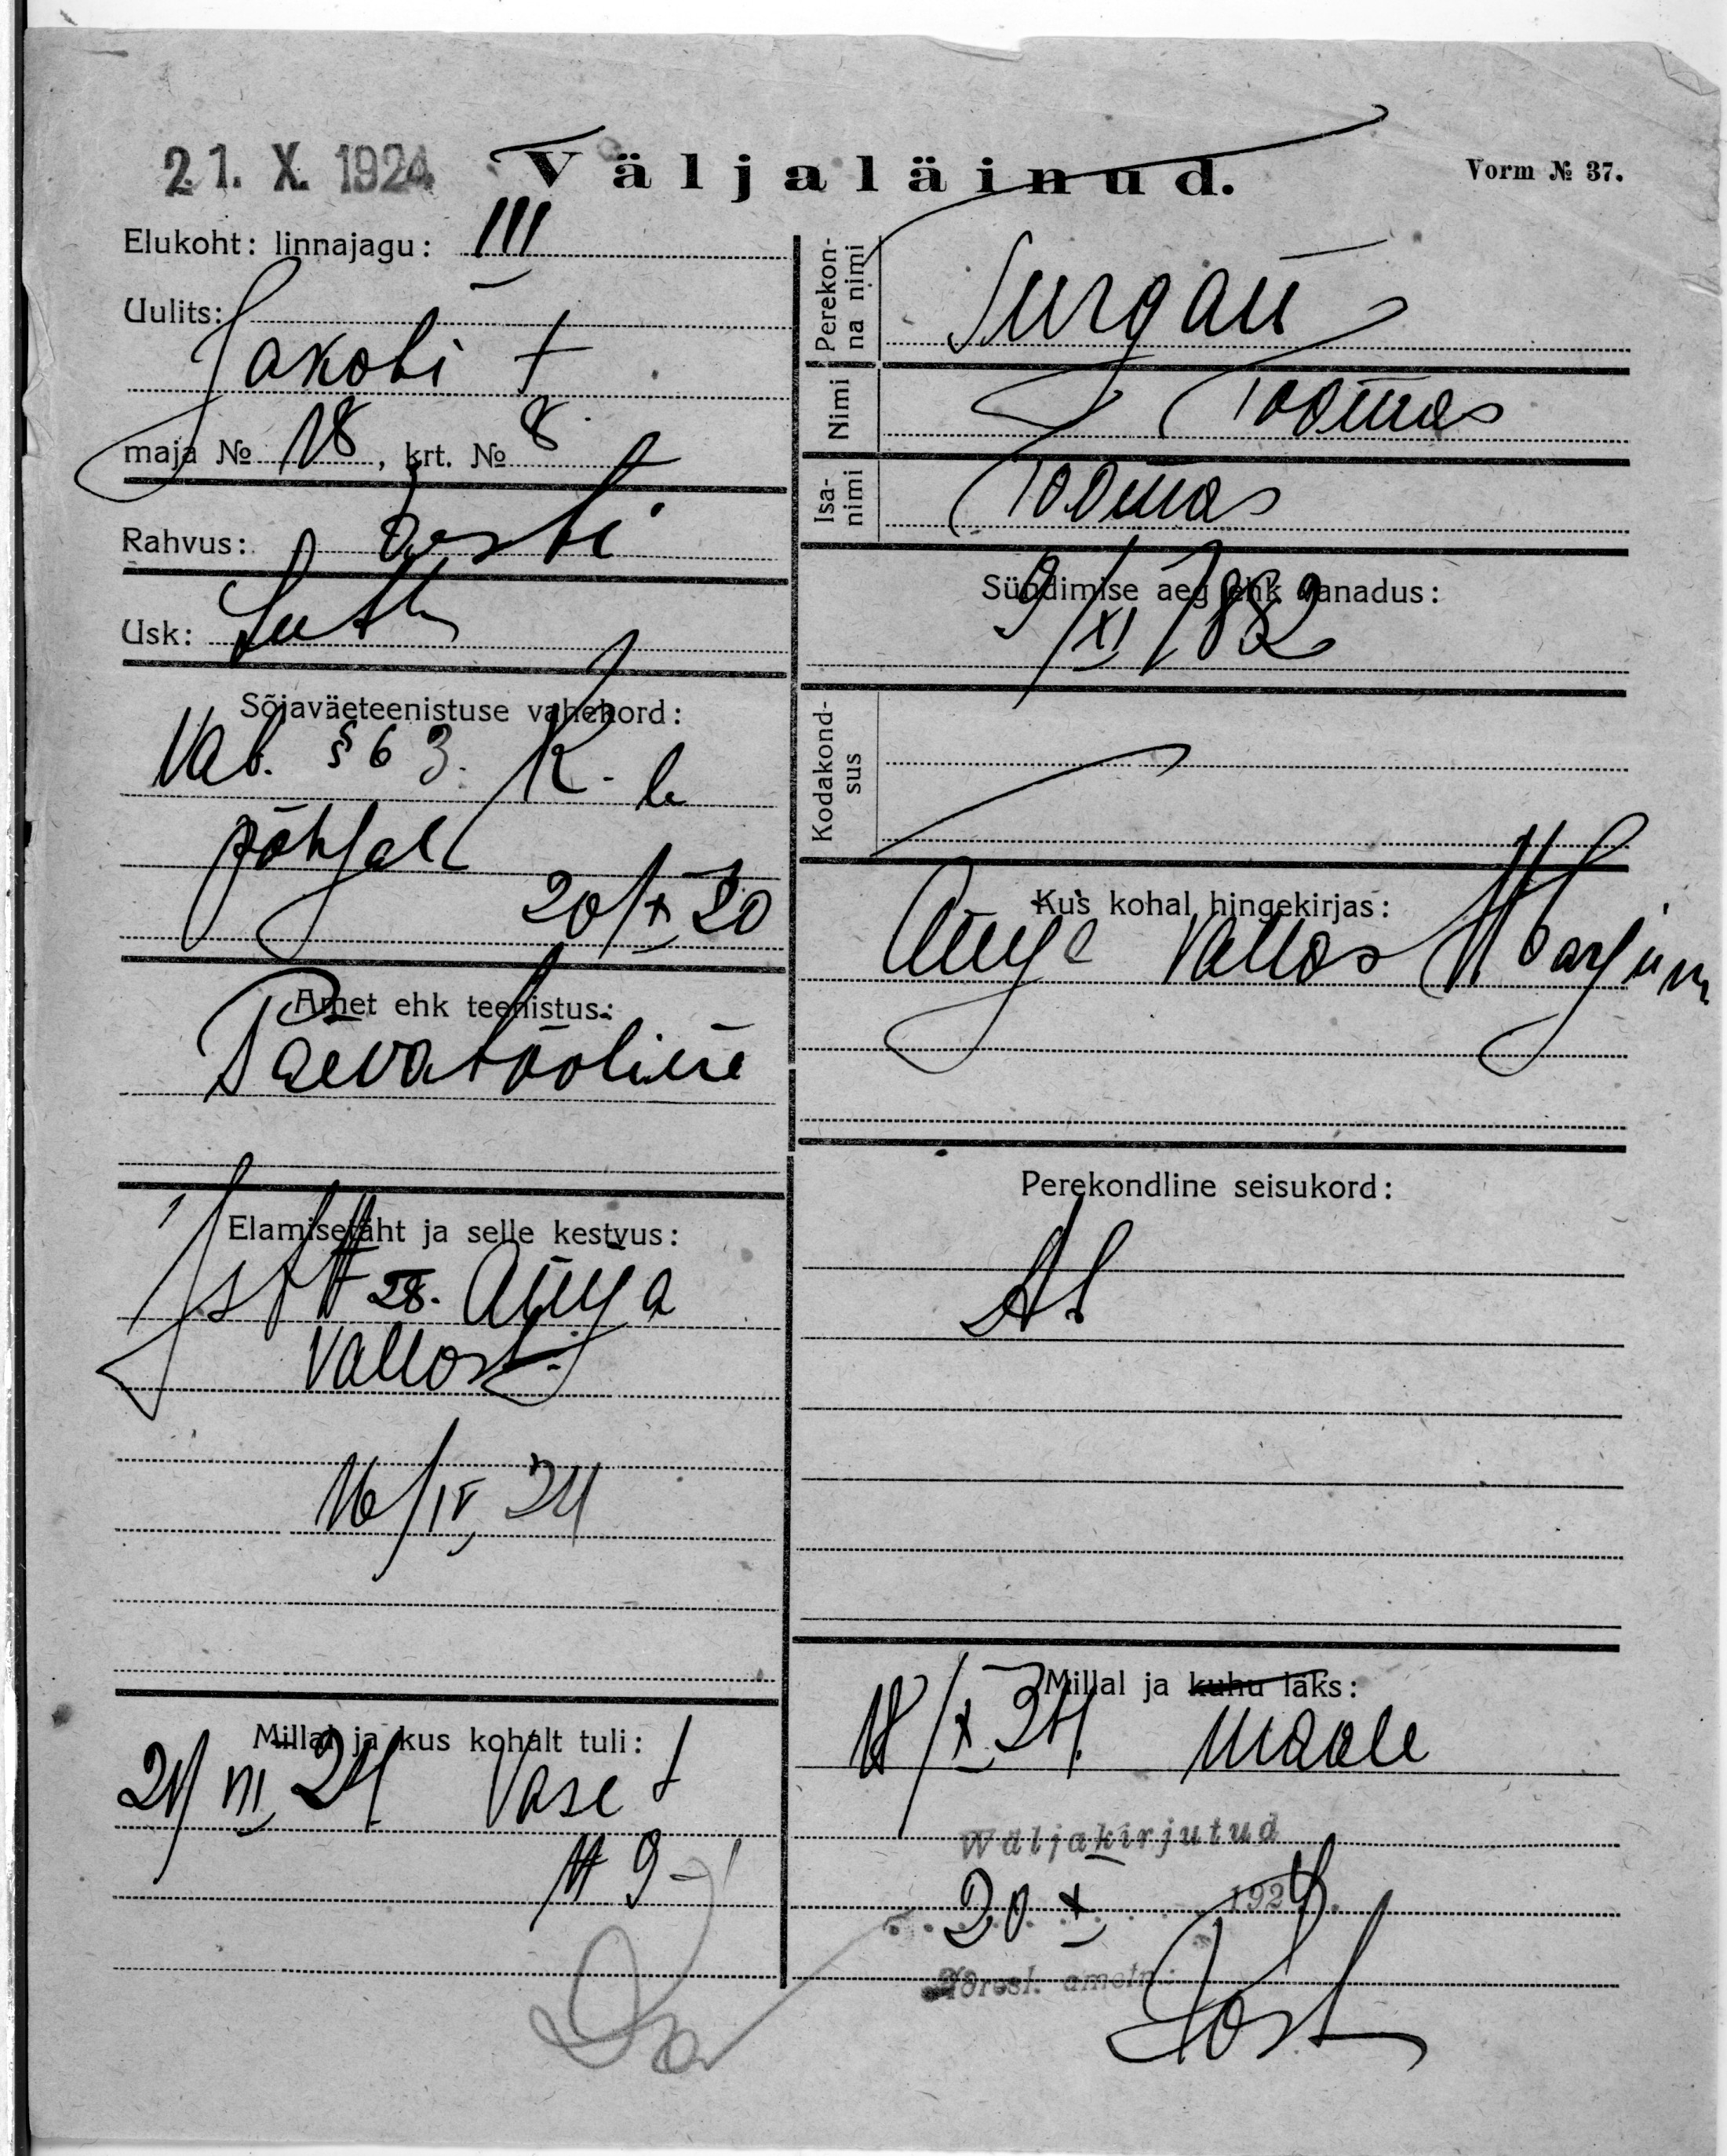 21. X. 1924
Väljaläinud.
Vorm № 37.
Elukoht: linnajagu: III
Uulits:
Jakobi t
maja № 18, krt. № 8.
Rahvus: Eesti
Usk: Luth
Sõjaväeteenistuse vahekord:
Vab. § 63. K.
põhjal
20/X 20
Amet ehk teenistus:
Päevatööline
Elamisetäht ja selle kestvus:
28. Anija
vallast.
16/IV 24
Millal ja kus kohalt tuli:
21/VII 24 Vase t
№ 9
Perekonna nimi
Surgau
Nimi
Toomas
Isanimi
Toomas
Sündimise aeg ehk vanadus:
9/XI 1882
Kodakondsus
Kus kohal hingekirjas:
Anija vallas Harjum
Perekondline seisukord:
Ab
Millal ja kuhu läks:
18/X 24. maale
Wäljakirjutud
20 X 1924.
ametn:
Post